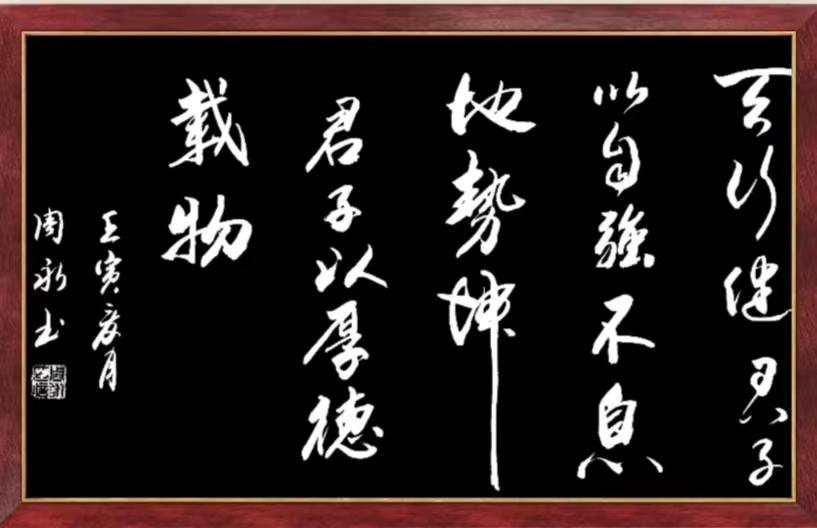 天行健君子
以自強不息
地勢坤
君子以厚德
載物
壬寅夏月
周永书